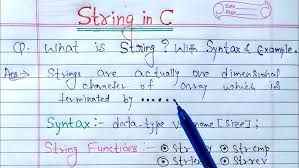 String in C
Date
Page
Q. What is String? With Syntax & Example.
Ans → Strings are actually one dimensional
character of array which is
terminated by ......
Syntax :- data-type v name [size];
String Functions :- Strcmp
Strrev